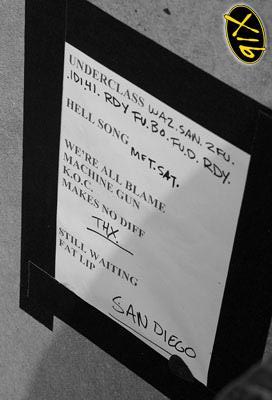 91X
UNDERCLASS WAZ. SAN. 2FU.
.ID141. RDY FU.BO. FU.D. RDY.
HELL SONG MFT. SAT.
WE'RE ALL BLAME
MACHINE GUN
K.O.C.
MAKES NO DIFF
THX.
STILL WAITING
FAT LIP
SAN DIEGO